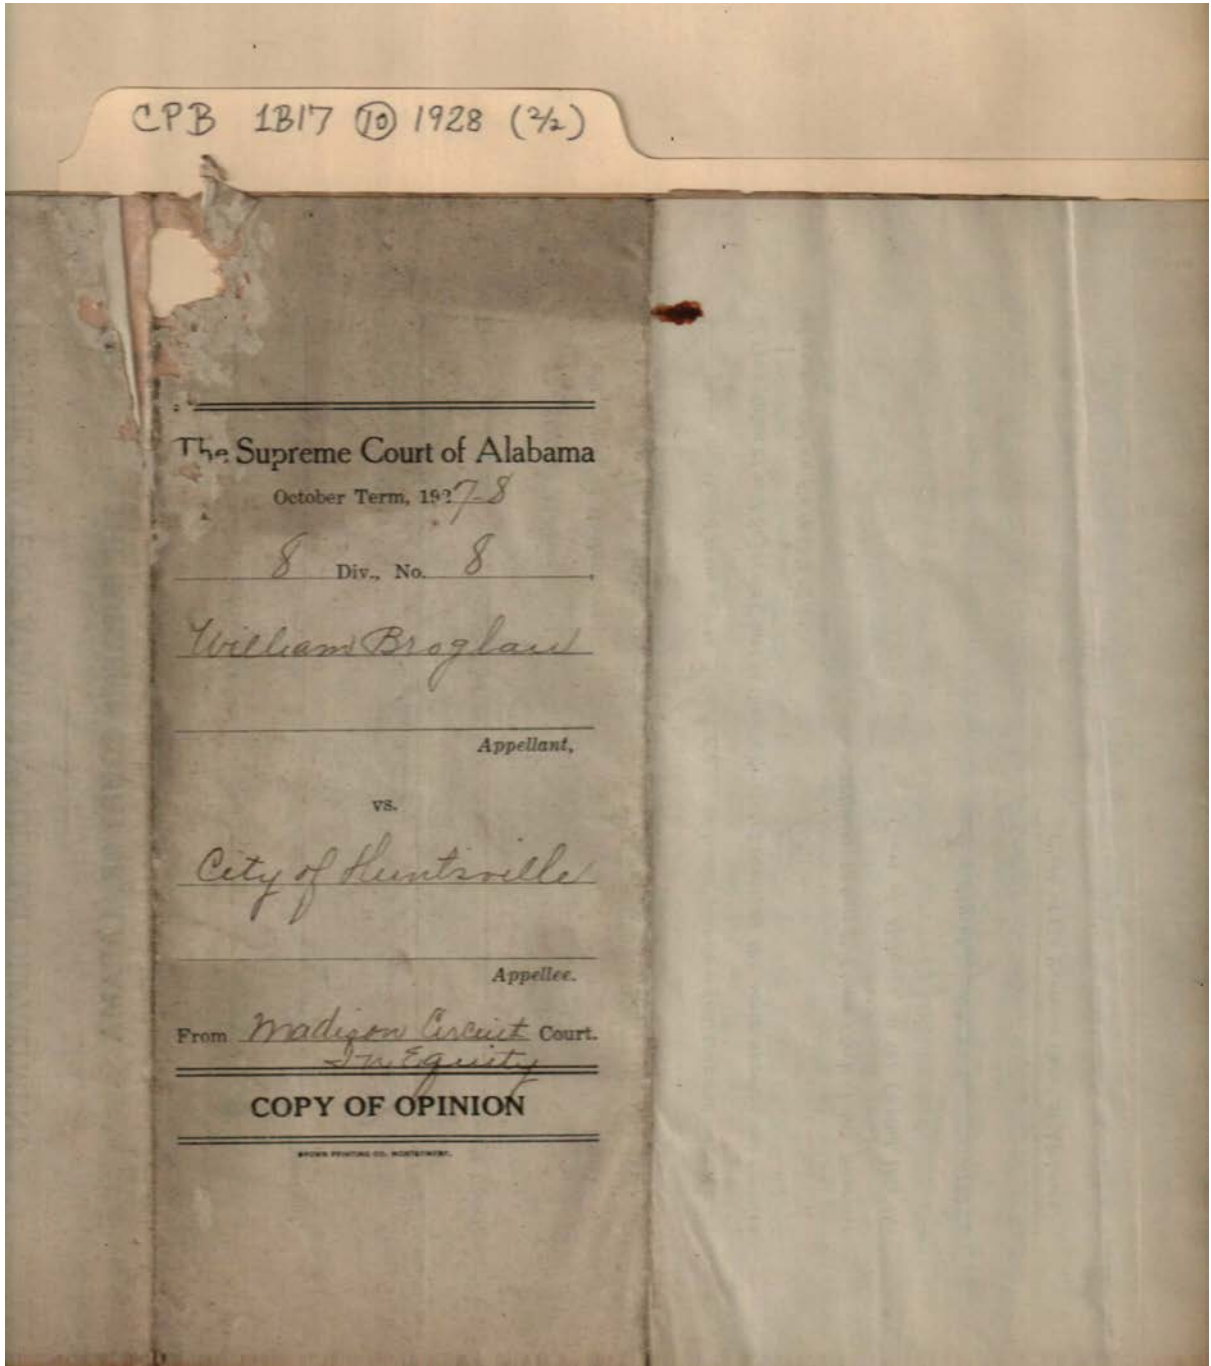 CPB 1B17 ⑩ 1928 (2/2)
The Supreme Court of Alabama
October Term, 1927-8
8 Div., No. 8,
William Broglan
Appellant,
vs.
City of Huntsville
Appellee.
From Madison Circuit Court.
In Equity
COPY OF OPINION
BROWN PRINTING CO. MONTGOMERY.